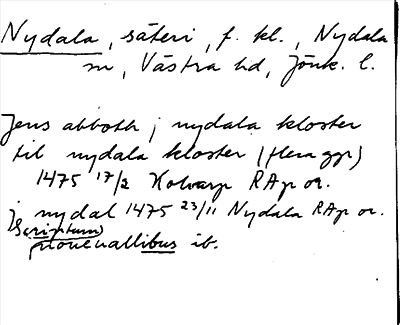 Nydala, säteri, f. kl., Nydala
sn, Västra hd, Jönk. l.
Jens abboth j nydala kloster
til nydala kloster (flera ggr)
1475 17/2 Kolvarp RAp or.
j nydal 1475 23/11 Nydala RAp or.
Scriptum
ibus ib.